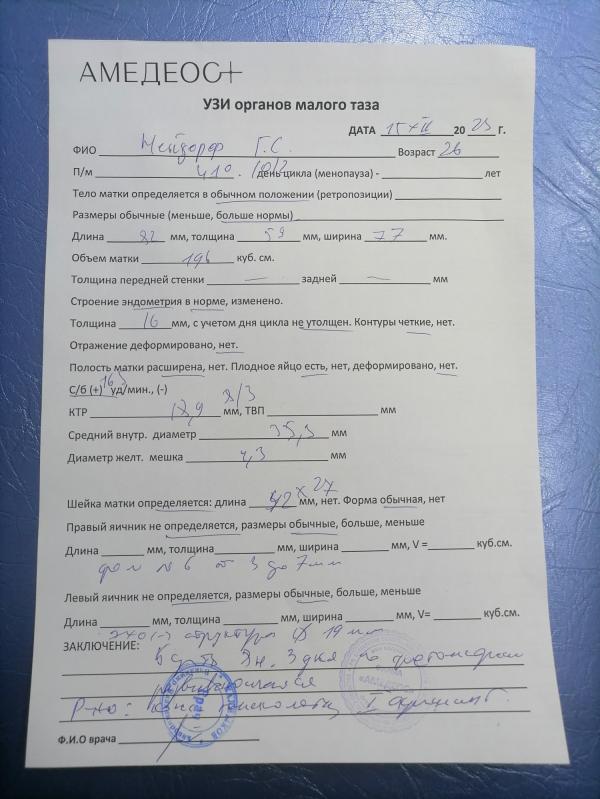 АМЕДЕОС+
УЗИ органов малого таза
ДАТА 15 XII 20 23 Г.
ФИО Г.С. Возраст 26
П/м день цикла (менопауза) - лет
Тело матки определяется в обычном положении (ретропозиции)
Размеры обычные (меньше, больше нормы)
Длина 82 мм, толщина 59 мм, ширина 77 мм.
Объем матки 196 куб. см.
Толщина передней стенки — задней — мм
Строение эндометрия в норме, изменено.
Толщина 16 мм, с учетом дня цикла не утолщен. Контуры четкие, нет.
Отражение деформировано, нет.
Полость матки расширена, нет. Плодное яйцо есть, нет, деформировано, нет.
С/б (+) уд/мин., (-)
КТР мм, ТВП мм
Средний внутр. диаметр 35,3 мм
Диаметр желт. мешка 4,3 мм
Шейка матки определяется: длина 42 х 27 мм, нет. Форма обычная, нет
Правый яичник не определяется, размеры обычные, больше, меньше
Длина мм, толщина мм, ширина мм, V = куб.см.
фол N 6 от 3 до 7 мм
Левый яичник не определяется, размеры обычные, больше, меньше
Длина мм, толщина мм, ширина мм, V= куб.см.
эхо(-) структура 19 мм
ЗАКЛЮЧЕНИЕ: 3 дня по фетометрии
Р-но:
Ф.И.О врача